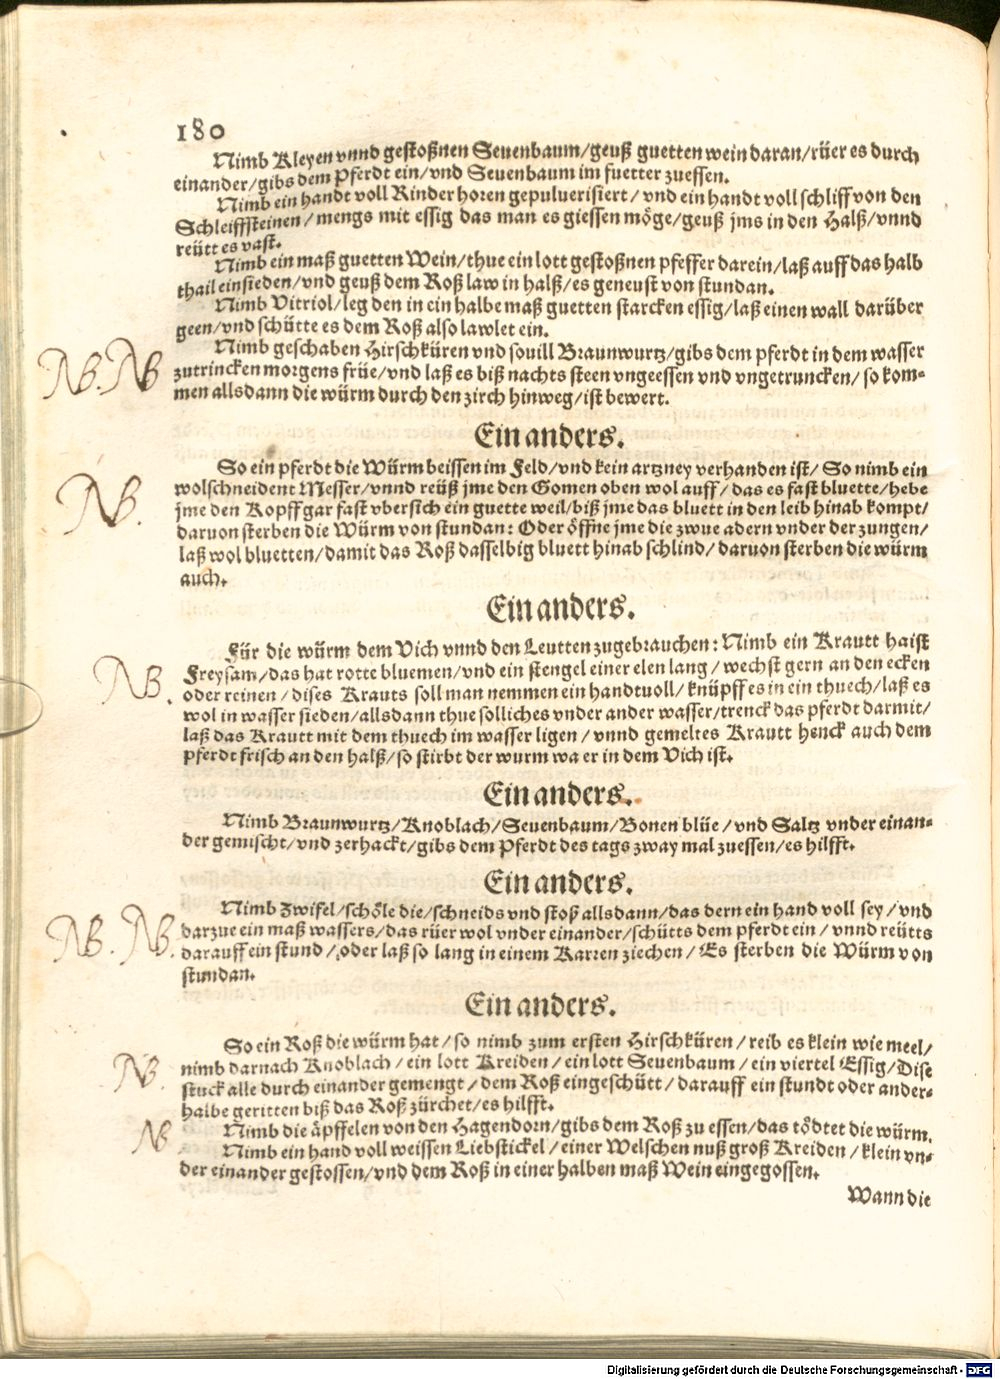 180
Nimb Kleyen vnnd gestoßnen Seuenbaum/geuß guetten wein daran/rüer es durch
einander/gibs dem Pferdt ein/vnd Seuenbaum im fuetter zuessen.
Nimb ein handt voll Rinder horen gepuluerisiert/vnd ein handt voll schliff von den
Schleiffsteinen/mengs mit essig das man es giessen möge/geuß jms in den Halß/vnnd
reütt es vast.
Nimb ein maß guetten Wein/thue ein lott gestoßnen pfeffer darein/laß auff das halb
thail einsieden/vnd geuß dem Roß law in halß/es geneust von stundan.
Nimb Vitriol/leg den in ein halbe maß guetten starcken essig/laß einen wall darüber
geen/vnd schütte es dem Roß also lawlet ein.
NB. NB Nimb geschaben Hirschküren vnd souill Braunwurtz/gibs dem pferdt in dem wasser
zutrincken morgens früe/vnd laß es biß nachts steen vngeessen vnd vngetruncken/so kom-
men allsdann die würm durch den zirch hinweg/ist bewert.
Ein anders.
NB. So ein pferdt die Würm beissen im Feld/vnd kein artzney verhanden ist/So nimb ein
wolschneident Messer/vnnd reüß jme den Gomen oben wol auff/das es fast bluette/hebe
jme den Kopff gar fast vbersich ein guette weil/biß jme das bluett in den leib hinab kompt/
daruon sterben die Würm von stundan: Oder öffne jme die zwue adern vnder der zungen/
laß wol bluetten/damit das Roß dasselbig bluett hinab schlind/daruon sterben die würm
auch.
Ein anders.
Für die würm dem Vich vnnd den Leutten zugebrauchen: Nimb ein Krautt haist
NB. Freysam/das hat rotte bluemen/vnd ein stengel einer elen lang/wechst gern an den ecken
oder reinen/dises Krauts soll man nemmen ein handtuoll/knüpff es in ein thuech/laß es
wol in wasser sieden/allsdann thue solliches vnder ander wasser/trenck das pferdt darmit/
laß das Krautt mit dem thuech im wasser ligen/vnnd gemeltes Krautt henck auch dem
pferdt frisch an den halß/so stirbt der wurm wa er in dem Vich ist.
Ein anders.
Nimb Braunwurtz/Knoblach/Seuenbaum/Bonen blüe/vnd Saltz vnder einan-
der gemischt/vnd zerhackt/gibs dem Pferdt des tags zway mal zuessen/es hilfft.
Ein anders.
Nimb Zwifel/schöle die/schneids vnd stoß allsdann/das dern ein hand voll sey/vnd
NB. NB. darzue ein maß wassers/das rüer wol vnder einander/schütts dem pferdt ein/vnnd reütts
darauff ein stund/oder laß so lang in einem Karren ziechen/Es sterben die Würm von
stundan.
Ein anders.
So ein Roß die würm hat/so nimb zum ersten Hirschküren/reib es klein wie meel/
NB. nimb darnach Knoblach/ein lott Kreiden/ein lott Seuenbaum/ein viertel Essig/Dise
stuck alle durch einander gemengt/dem Roß eingeschütt/darauff ein stundt oder ander-
halbe geritten biß das Roß zürchet/es hilfft.
NB Nimb die äpffelen von den Hagendorn/gibs dem Roß zu essen/das tödtet die würm.
Nimb ein hand voll weissen Liebstickel/einer Welschen nuß groß Kreiden/klein vn-
der einander gestossen/vnd dem Roß in einer halben maß Wein eingegossen.
Wann die
Digitalisierung gefördert durch die Deutsche Forschungsgemeinschaft - DFG